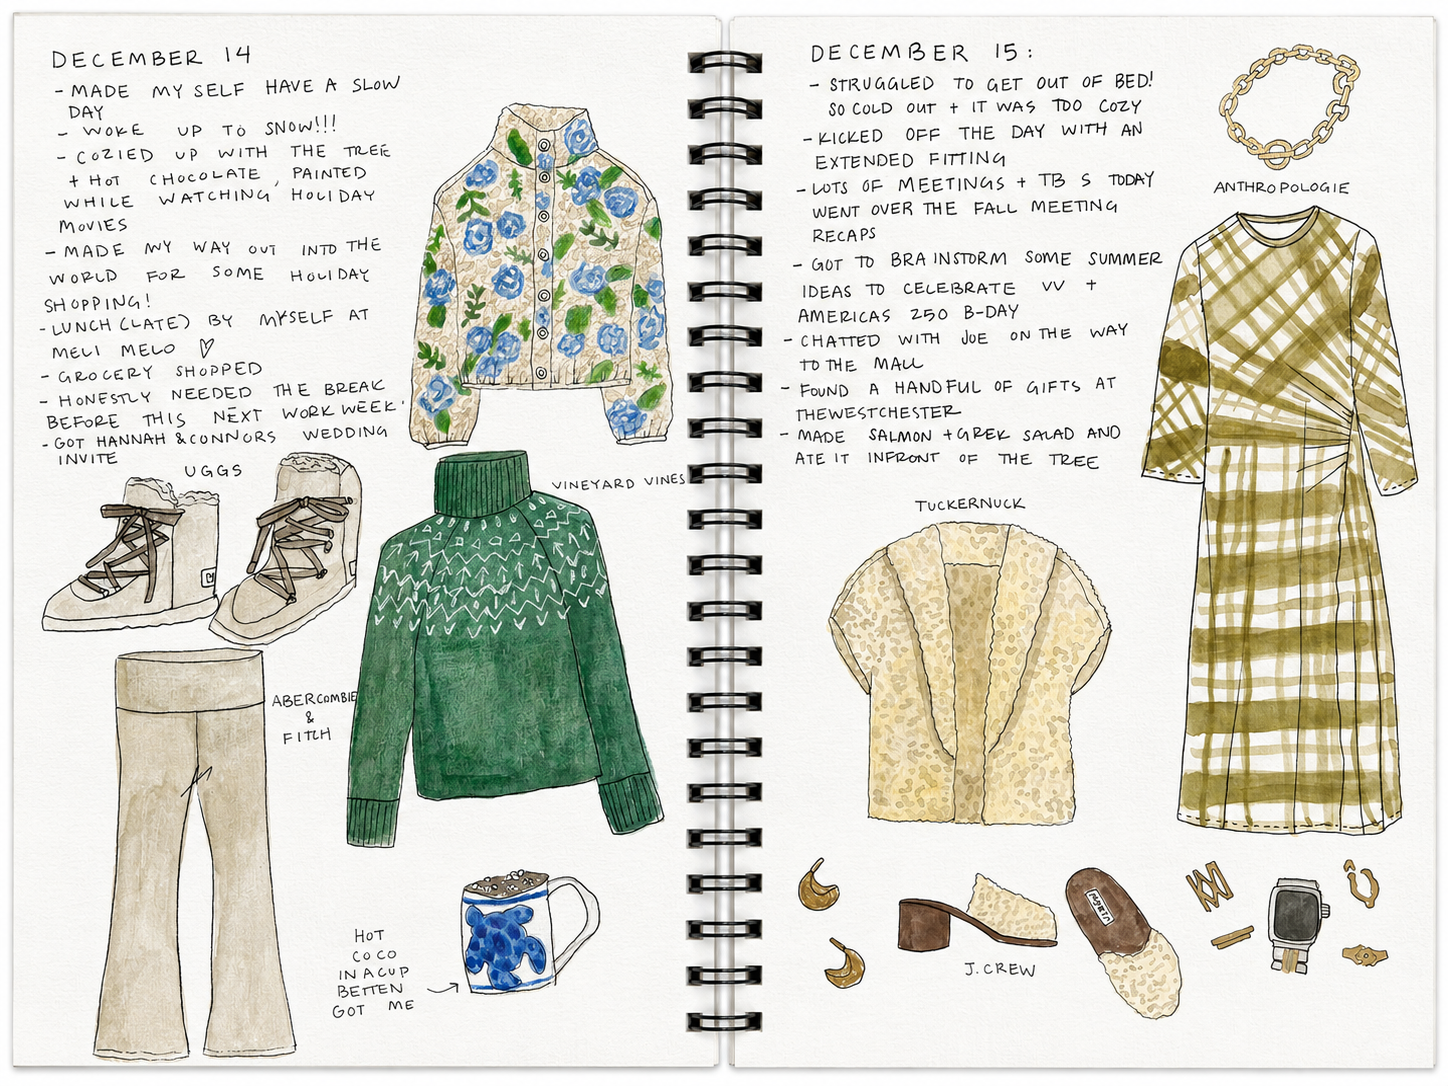 DECEMBER 14
- MADE MY SELF HAVE A SLOW
DAY
- WOKE UP TO SNOW!!!
- COZIED UP WITH THE TREE
+ HOT CHOCOLATE, PAINTED
WHILE WATCHING HOLIDAY
MOVIES
- MADE MY WAY OUT INTO THE
WORLD FOR SOME HOLIDAY
SHOPPING!
- LUNCH (LATE) BY MYSELF AT
MELI MELO ♡
- GROCERY SHOPPED
- HONESTLY NEEDED THE BREAK
BEFORE THIS NEXT WORK WEEK.
- GOT HANNAH & CONNORS WEDDING
INVITE
UGGS
VINEYARD VINES
ABERCOMBIE
&
FITCH
HOT
COCO
IN A CUP
BETTEN
GOT ME
DECEMBER 15:
- STRUGGLED TO GET OUT OF BED!
SO COLD OUT + IT WAS TOO COZY
- KICKED OFF THE DAY WITH AN
EXTENDED FITTING
- LOTS OF MEETINGS + TB S TODAY
WENT OVER THE FALL MEETING
RECAPS
- GOT TO BRAINSTORM SOME SUMMER
IDEAS TO CELEBRATE VV +
AMERICAS 250 B-DAY
- CHATTED WITH JOE ON THE WAY
TO THE MALL
- FOUND A HANDFUL OF GIFTS AT
THEWESTCHESTER
- MADE SALMON + GREK SALAD AND
ATE IT INFRONT OF THE TREE
ANTHROPOLOGIE
TUCKERNUCK
J.CREW